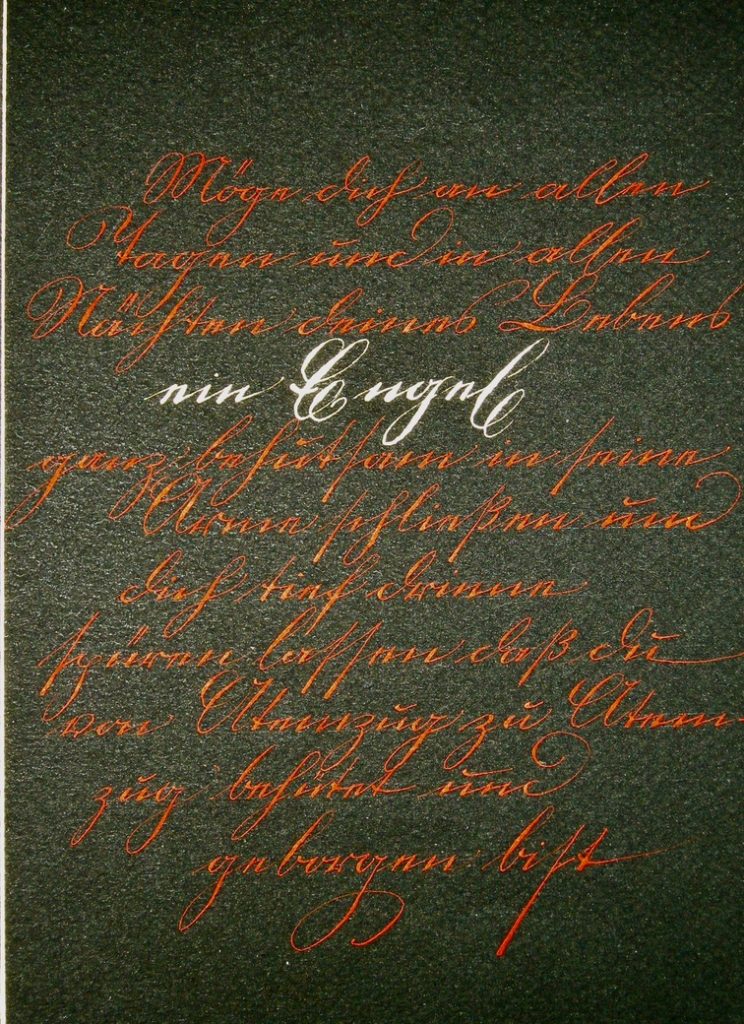 Möge dich an allen
Tagen und in allen
Nächten deines Lebens
ein Engel
ganz behutsam in seine
Arme schließen und
dich tief drinne
spüren lassen daß du
von Atemzug zu Atem-
zug behütet und
geborgen bist